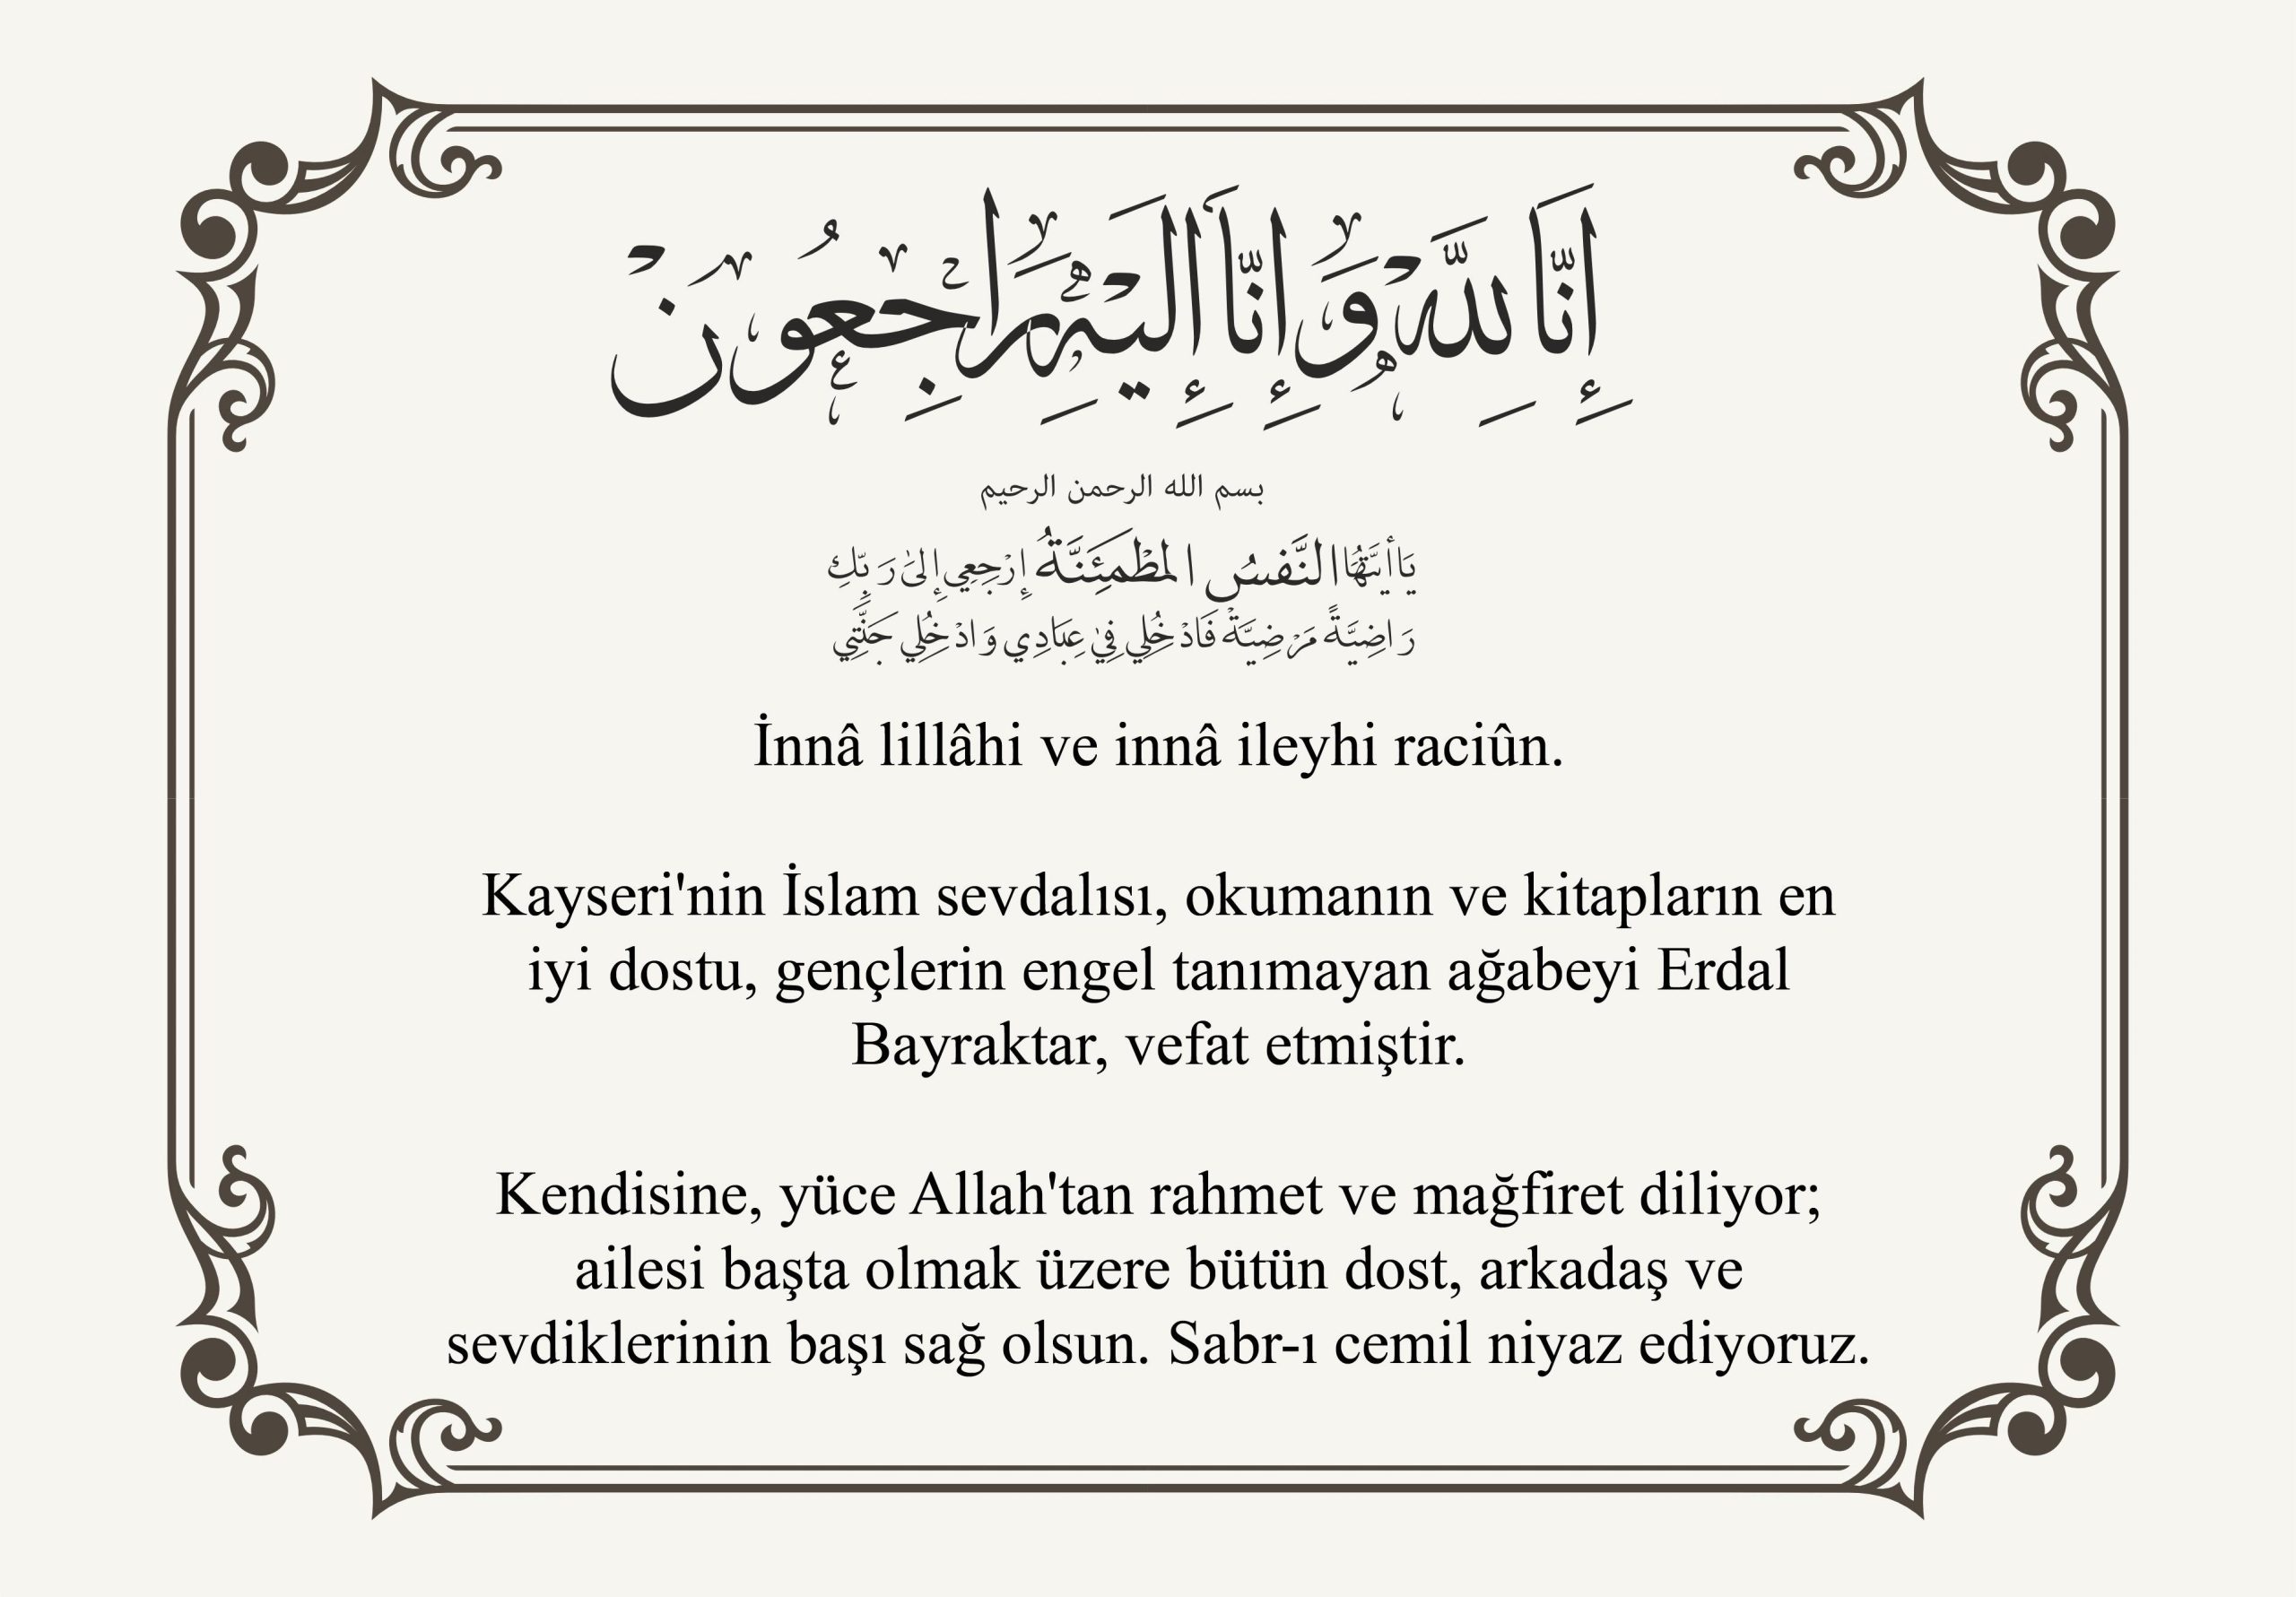 إِنَّا لِلَّهِ وَإِنَّا إِلَيْهِ رَاجِعُونَ
بسم الله الرحمن الرحيم
يَا أَيَّتُهَا النَّفْسُ المُطْمَئِنَّةُ إِرْجِعِي إِلَىٰ رَبِّكِ
رَاضِيَّةً مَرْضِيَّةً فَادْخُلِي فِي عِبَادِي وَادْخُلِي جَنَّتِي
İnnâ lillâhi ve innâ ileyhi raciûn.
Kayseri'nin İslam sevdalısı, okumanın ve kitapların en
iyi dostu, gençlerin engel tanımayan ağabeyi Erdal
Bayraktar, vefat etmiştir.
Kendisine, yüce Allah'tan rahmet ve mağfiret diliyor;
ailesi başta olmak üzere bütün dost, arkadaş ve
sevdiklerinin başı sağ olsun. Sabr-ı cemil niyaz ediyoruz.